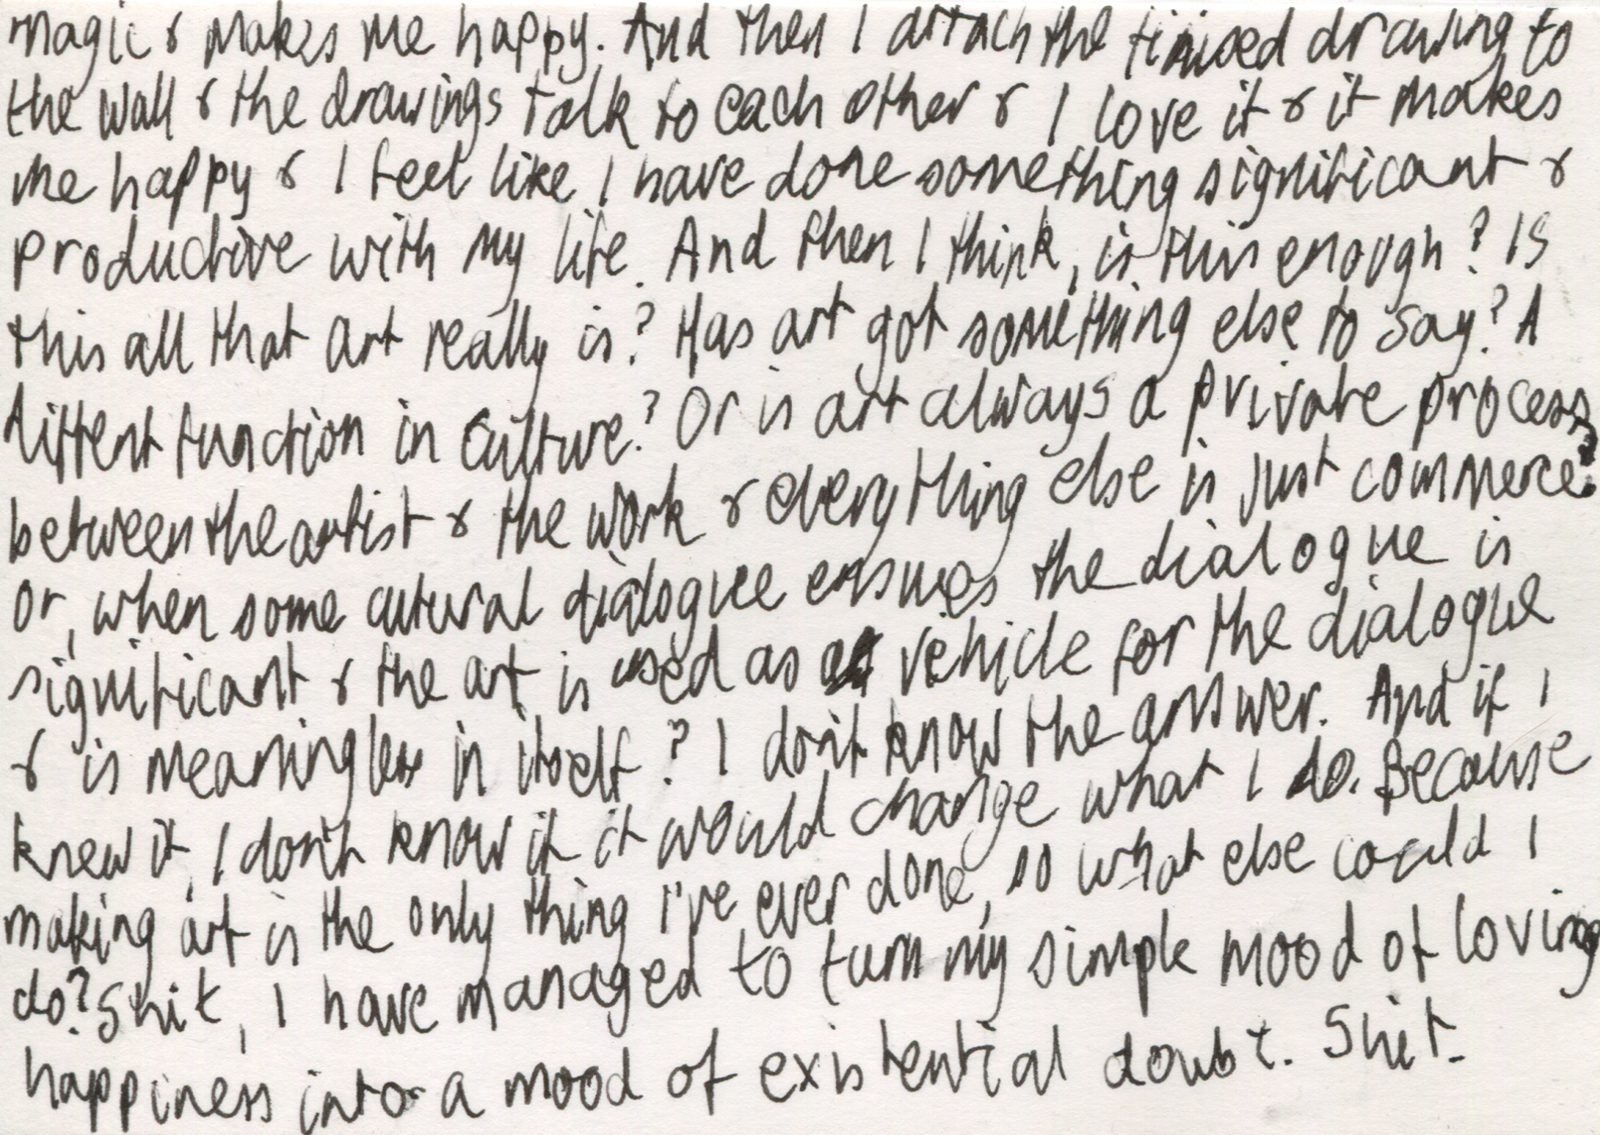 magic & makes me happy. And then I attach the finised drawing to
the wall & the drawings talk to each other & I love it & it makes
me happy & I feel like I have done something significant &
productive with my life. And then I think, is this enough? Is
this all that art really is? Has art got something else to say? A
diffent function in culture? Or is art always a private process
between the artist & the work & everything else is just commerce?
Or, when some cutural dialogue ensues the dialogue is
significant & the art is used as vehicle for the dialogue
& is meaningless in itself? I don't know the answer. And if I
knew it, I don't know if it would change what I do. Because
making art is the only thing I've ever done, so what else could I
do? Shit, I have managed to turn my simple mood of loving
happiness into a mood of existential doubt. Shit.